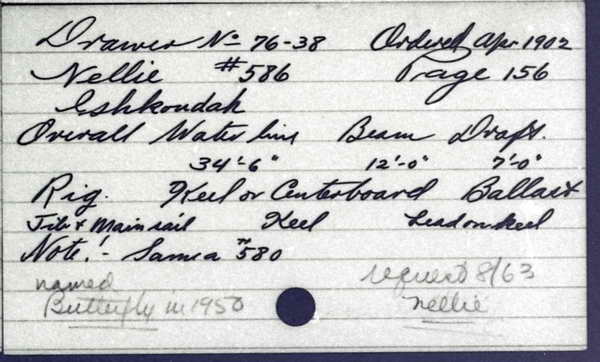 Drawer No 76-38 Ordered Apr 1902
Nellie #586 Page 156
Eshkoudah
Overall Water line Beam Draft.
34'-6" 12'-0" 7'-0"
Rig. Keel or Centerboard Ballast
Jib & Mainsail Keel Lead on keel
Note! - Same as #580
named request 8/63
Butterfly in 1950 Nellie